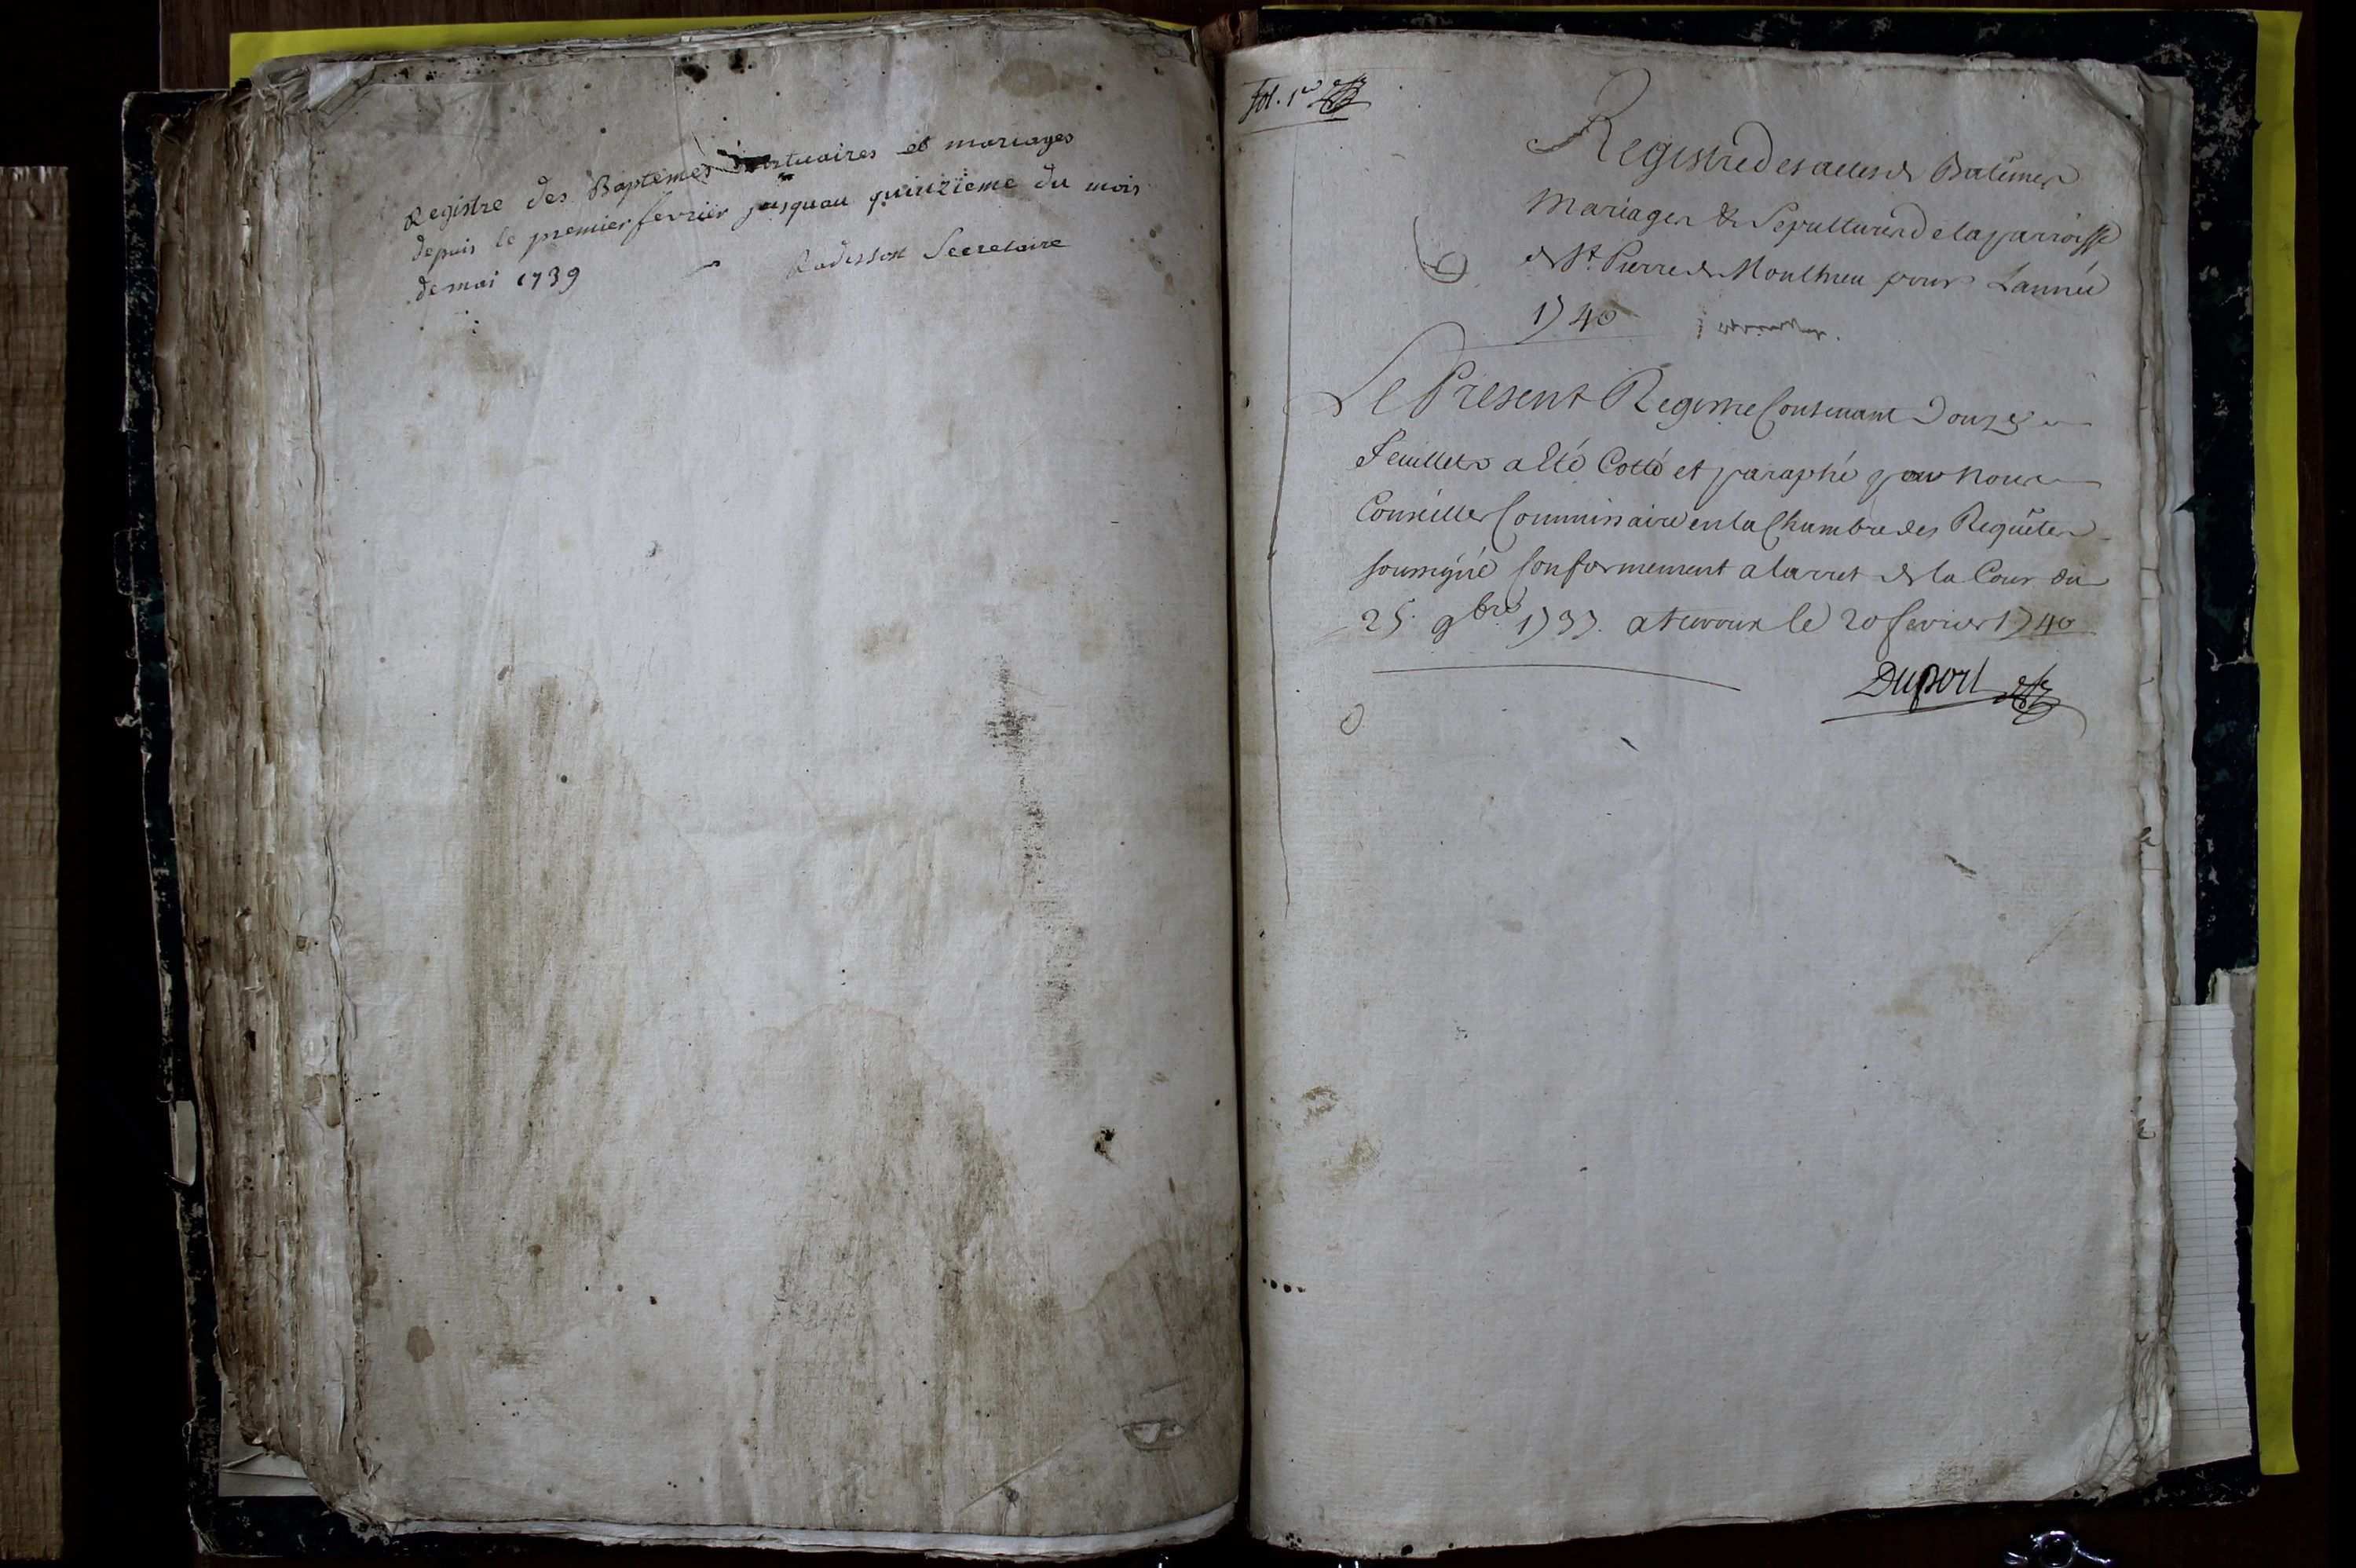 Registre des Baptemes mortuaires et mariages
depuis le premier fevrier jusquau quinzieme du mois
de mai 1739
Radisson Secretaire
fol. 1er
Registre des actes de Batêmes
Mariages & Sepultures de la parroisse
de St. Pierre de Monthieu pour Lannée
1740
Le Present Registre Contenant Douze
Feuillets a Eté Cotté et paraphé par Nous
Conseiller Commissaire en la Chambre des Requêtes
soussigné Conformement a larret de la Cour du
25. 9bre 1737. a trevoux le 20 fevrier 1740
Duport